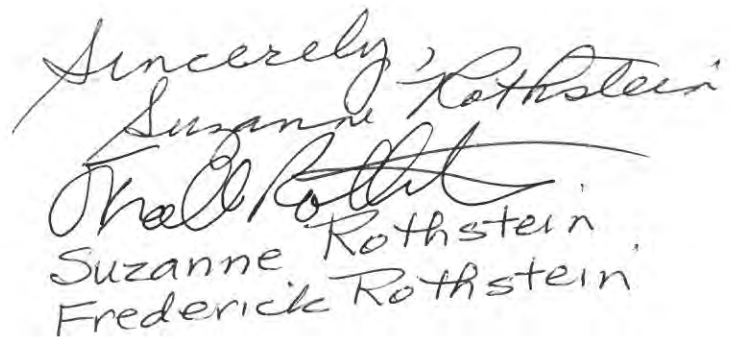 Sincerely,
Suzanne Rothstein
Suzanne Rothstein
Frederick Rothstein